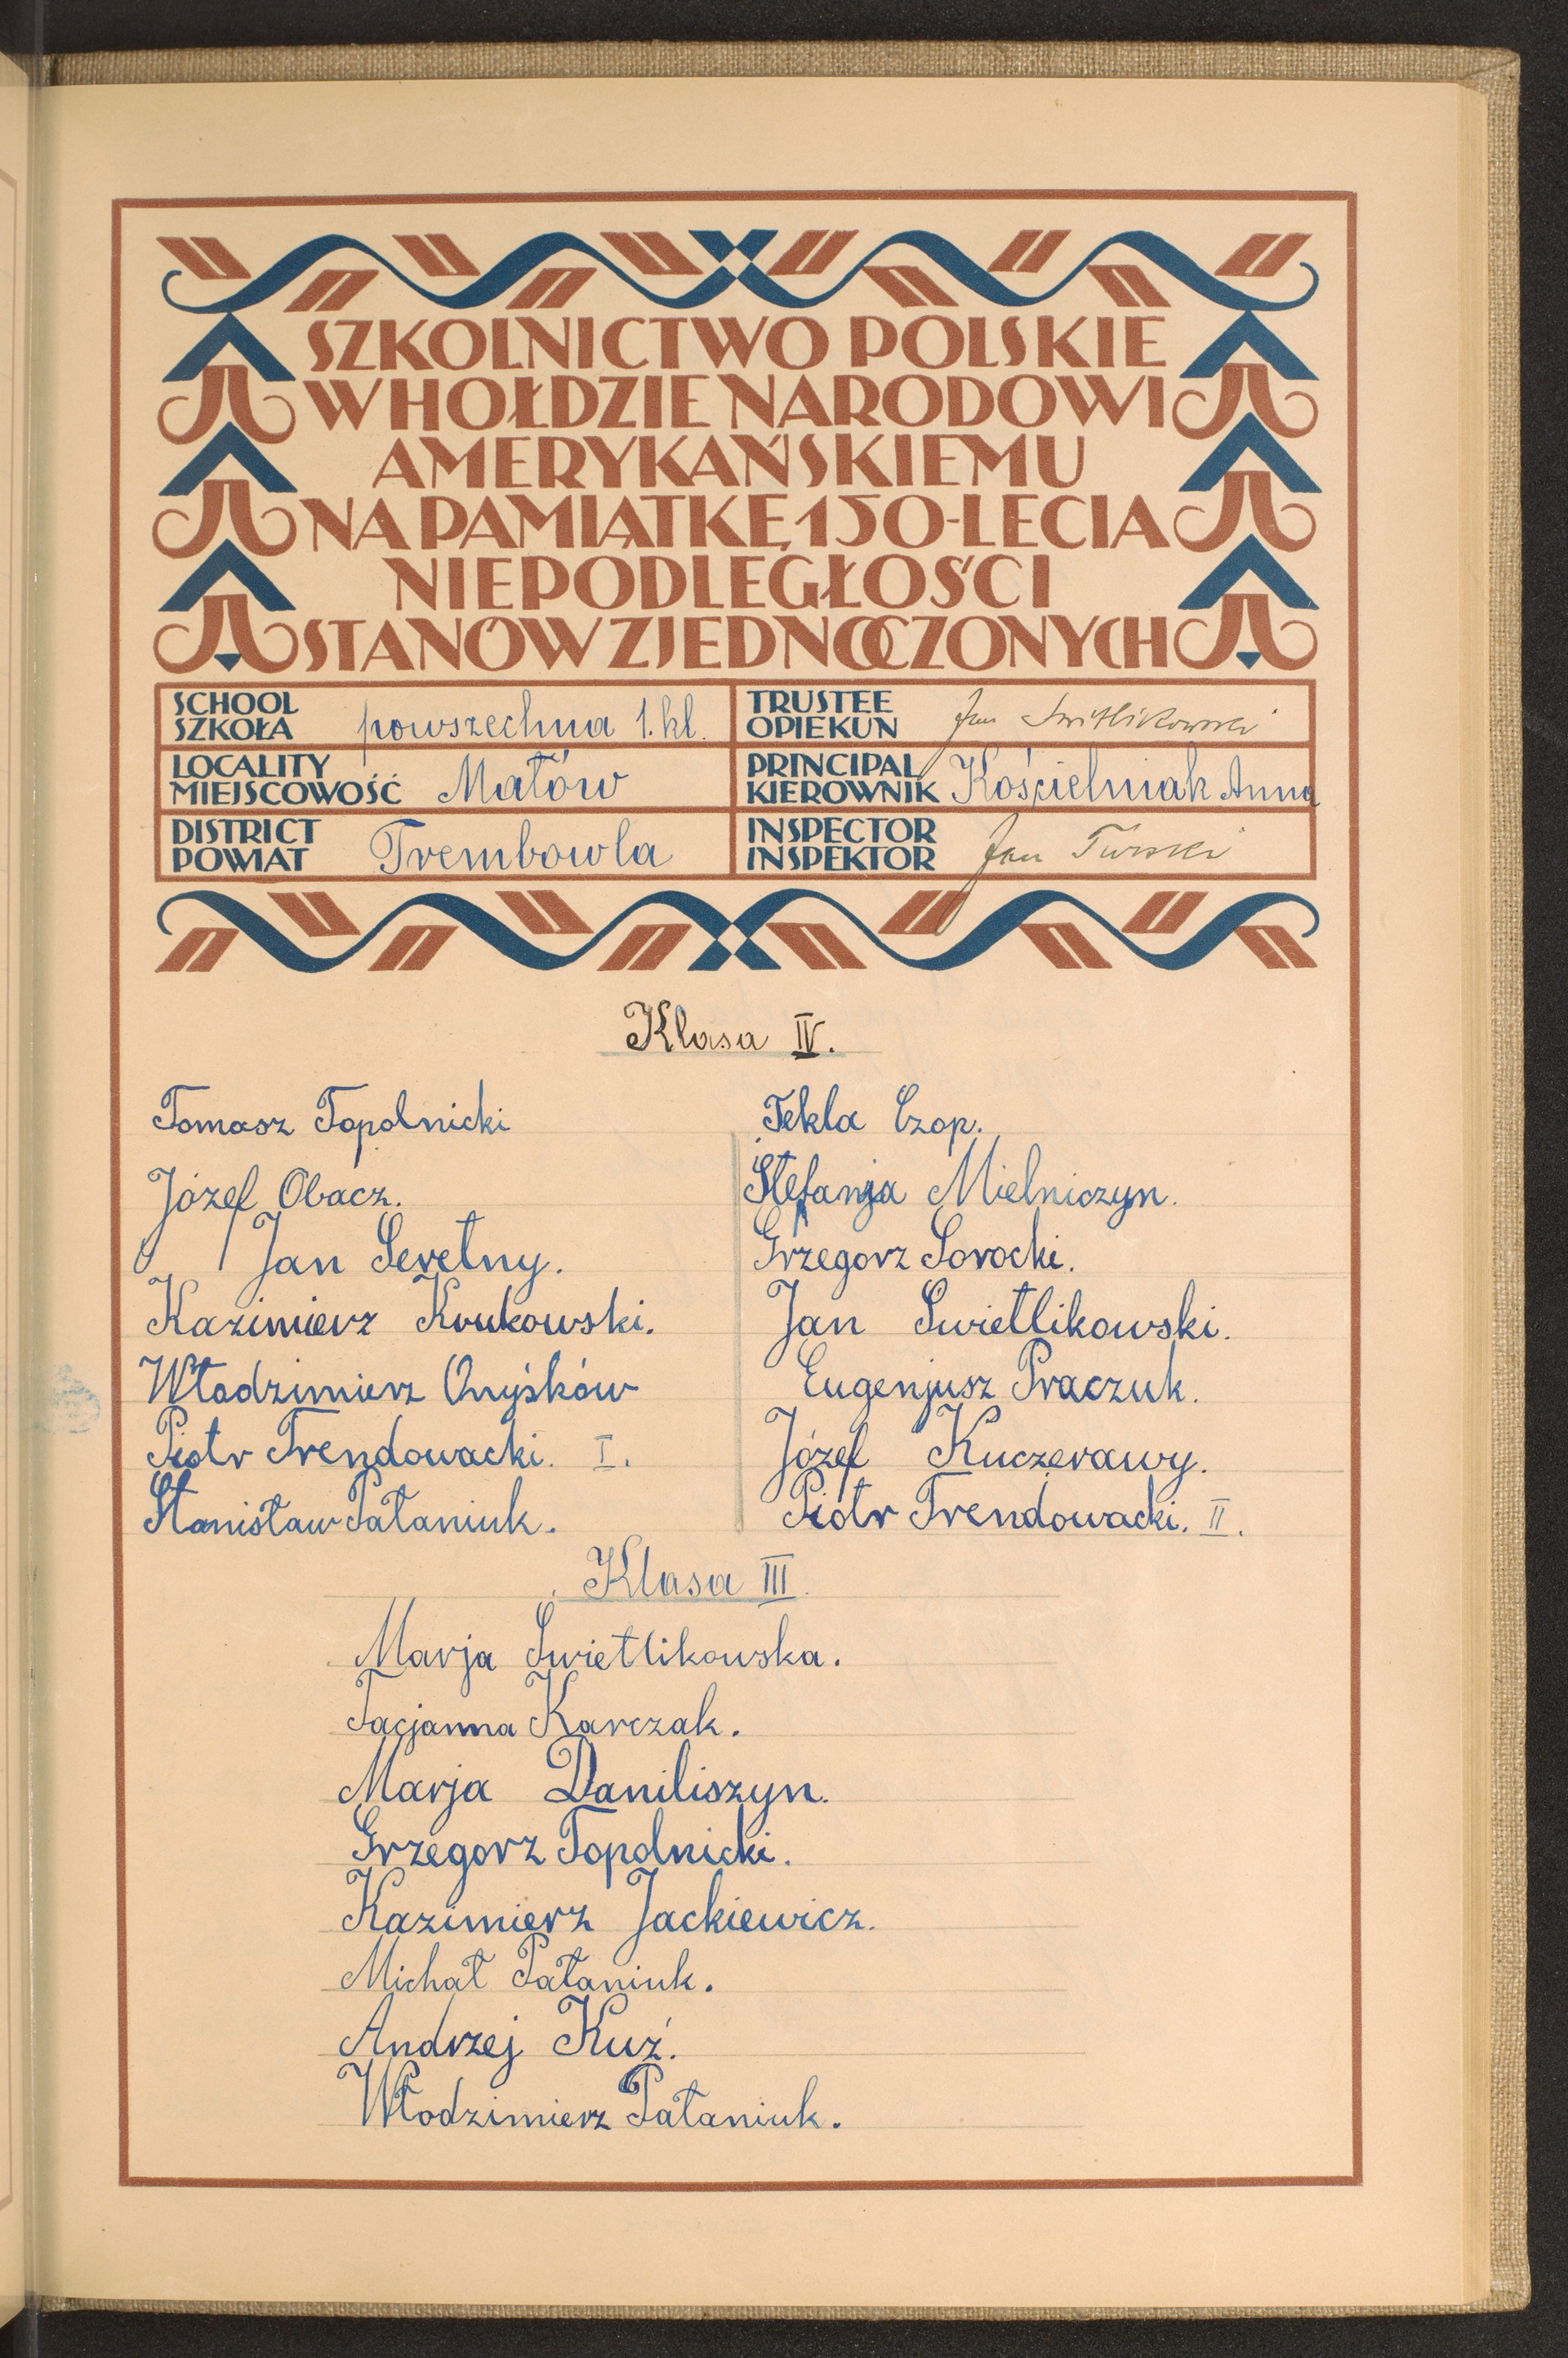 SZKOLNICTWO POLSKIE
W HOŁDZIE NARODOWI
AMERYKAŃSKIEMU
NA PAMIĄTKĘ 150-LECIA
NIEPODLEGŁOŚCI
STANÓW ZJEDNOCZONYCH
SCHOOL
SZKOŁA powszechna 1.kl.
TRUSTEE
OPIEKUN Jan Swietlikowski
LOCALITY
MIEJSCOWOŚĆ Małów
PRINCIPAL
KIEROWNIK Kościelniak Anna
DISTRICT
POWIAT Trembowla
INSPECTOR
INSPEKTOR Jan Turski
Klasa IV.
Tomasz Topolnicki
Józef Obacz.
Jan Seretny.
Kazimierz Krukowski.
Włodzimierz Onyśków
Piotr Trendowacki. I.
Stanisław Pataniuk.
Tekla Czop.
Stefanja Mielniczyn.
Grzegorz Sorocki.
Jan Swietlikowski.
Eugenjusz Praczuk.
Józef Kuczerawy.
Piotr Trendowacki. II.
Klasa III.
Marja Swietlikowska.
Tacjanna Karczak.
Marja Daniliszyn.
Grzegorz Topolnicki.
Kazimierz Jackiewicz.
Michał Pataniuk.
Andrzej Kuź.
Włodzimierz Pataniuk.